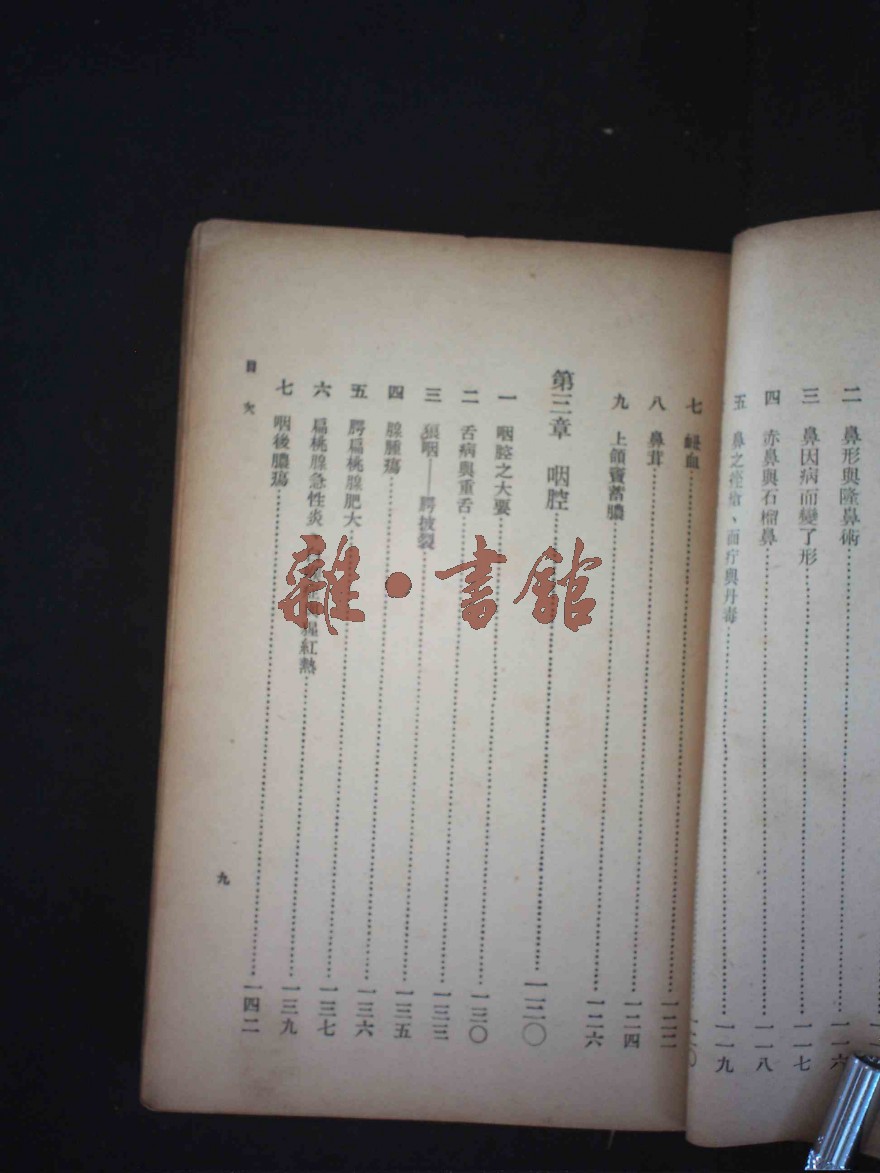 二 鼻形與隆鼻術……一一六
三 鼻因病而變了形……一一七
四 赤鼻與石榴鼻……一一八
五 鼻之痤瘡、面疔與丹毒……一一九
七 衄血……一二二
八 鼻茸……一二四
九 上頷竇蓄膿……一二六
第三章 咽腔……一三〇
一 咽腔之大要……一三〇
二 舌病與重舌……一三三
三 狼咽——腭披裂……一三五
四 腺腫瘍……一三六
五 腭扁桃腺肥大……一三七
六 扁桃腺急性炎 猩紅熱……一三九
七 咽後膿瘍……一四二
目次
九
雜·書館